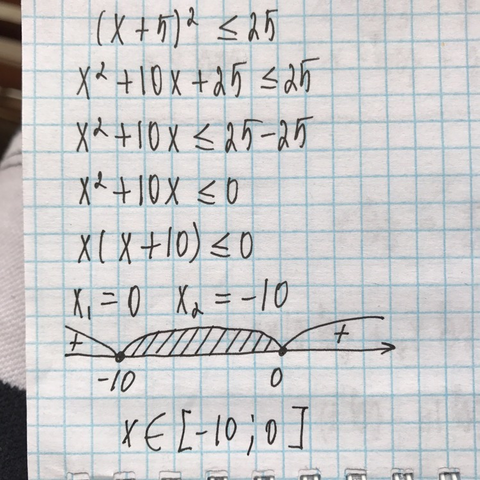 (x+5)² ≤ 25
x² +10x+25 ≤ 25
x² +10x ≤ 25-25
x² +10x ≤ 0
x(x+10) ≤ 0
x₁ = 0 x₂ = -10
+ +
-10 0
x ∈ [-10; 0]